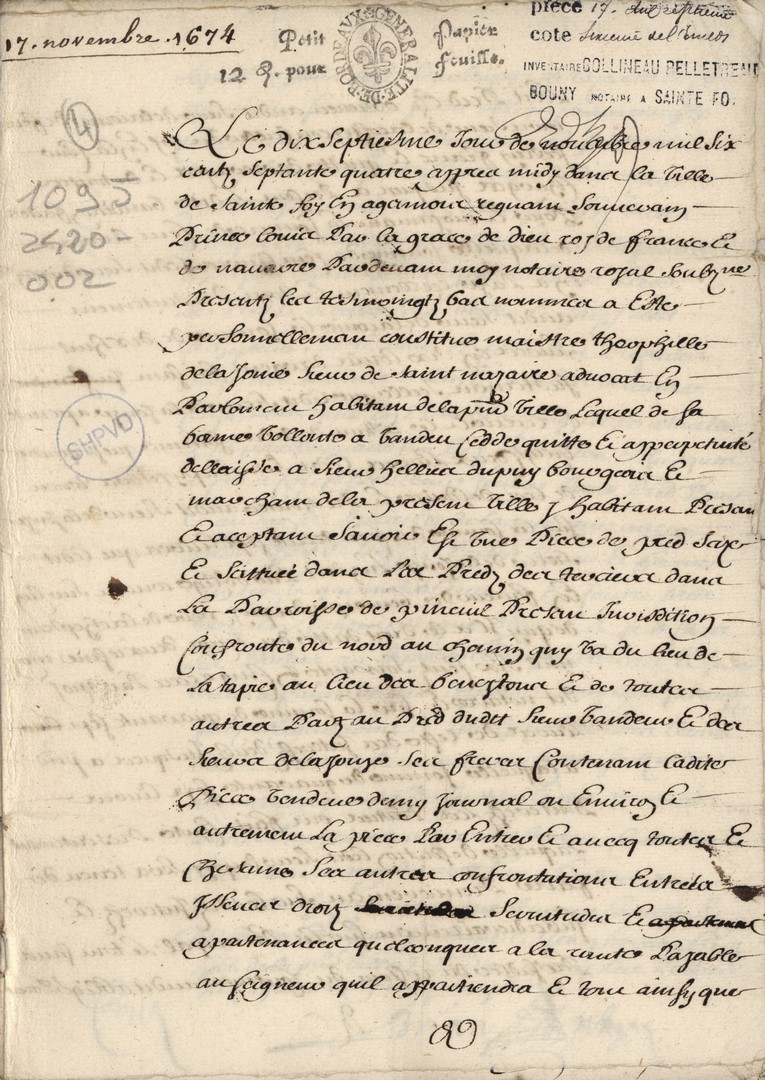 17. novembre. 1674
Petit Papier
12 d. pour feuille.
GENERALITE DE BORDEAUX
piece 17. dixseptieme
cote
INVENTAIRE COLLINEAU PELLETREAU
BOUNY NOTAIRE A SAINTE FO.
4
1095
2420-
002
SHPVD
Le dix septiesme Jour de novembre mil six
centz septante quatre appres midy dans la ville
de Sainte foy En agennois regnant Souverain
Prince louis Par la grace de dieu roy de france Et
de navarre Pardevant moy notaire royal Soubzne
Presentz les tesmoingtz bas nommes a Este
personnellement constitue maistre theophille
de la Jonie Sieur de Saint nazaire advocat En
Parlement habitant de la pnte ville Lequel de sa
bonne vollonte a vandu Cedde quitte Et a perpetuité
dellaisse a Sieur hellies dupuy bourgeois Et
marchant de la present ville y habitant Presant
Et aceptant Savoir Est une Piece de pred Size
Et Scittuée dans Les Predz des terciers dans
La Parroisse de pineuil Presan Jurisdition
Confronte du nord au chemin quy va du lieu de
La tapie au lieu des benestons Et de toutes
autres Partz au Pred dudit Sieur vandeur Et des
Sieurs de la Jonye Ses freres Contenant Ladite
Piece vendeue demy Journal ou Environ Et
autrement La piece Par Entier Et avecq toutes Et
Chescunes Ses autres confrontations Entrées
Yssues droitz Servitudes Et
apartenances quelconques a la rante Payable
au Seigneur quil appartiendra Et tout ainsy que